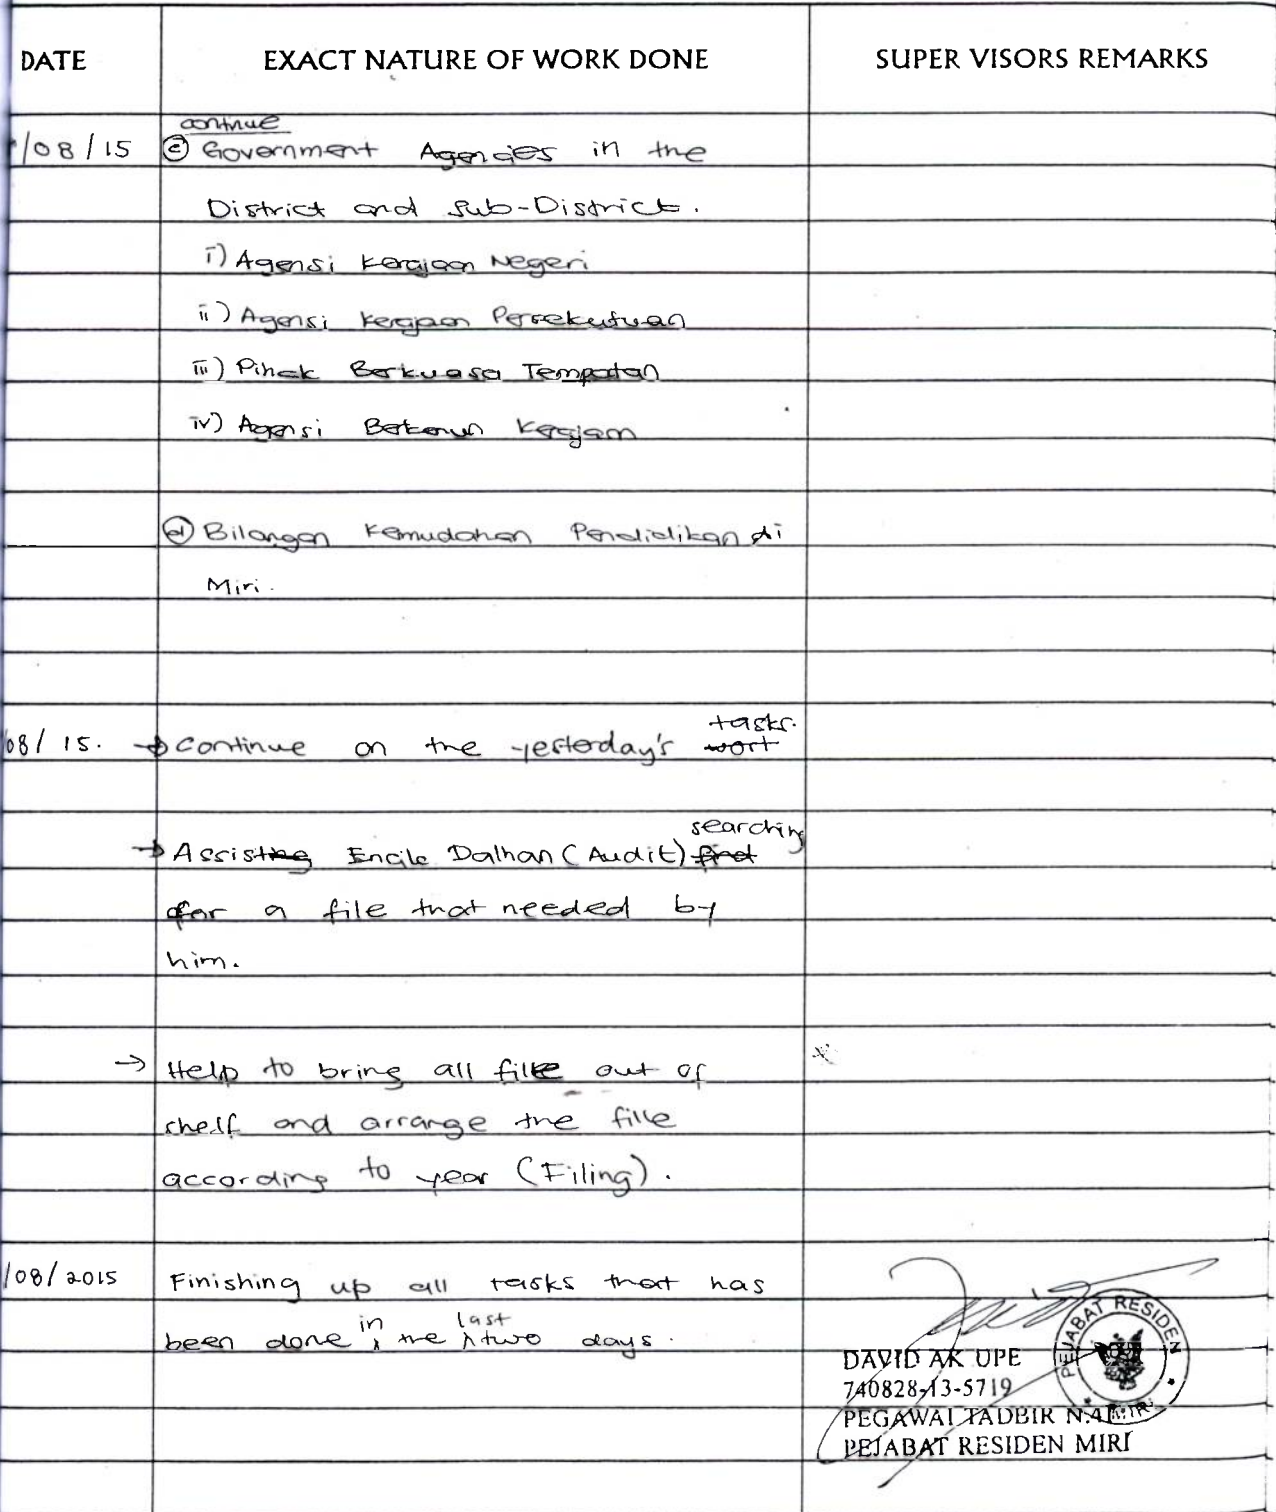 DATE EXACT NATURE OF WORK DONE SUPER VISORS REMARKS
continue
/08/15 (c) Government Agencies in the
District and Sub-District.
i) Agensi Kerajaan Negeri
ii) Agensi Kerajaan Persekutuan
iii) Pihak Berkuasa Tempatan
iv) Agensi Berkanun Kerajaan
(d) Bilangan Kemudahan Pendidikan di
Miri.
tasks.
08/15. → Continue on the yesterday's work
searching
→ Assisting Encik Dalhan (Audit) find
for a file that needed by
him.
→ Help to bring all file out of
shelf and arrange the file
according to year (Filing).
/08/2015 Finishing up all tasks that has
been done in the last two days.
PEJABAT RESIDEN
MIRI
DAVID AK UPE
740828-13-5719
PEGAWAI TADBIR N.41
PEJABAT RESIDEN MIRI